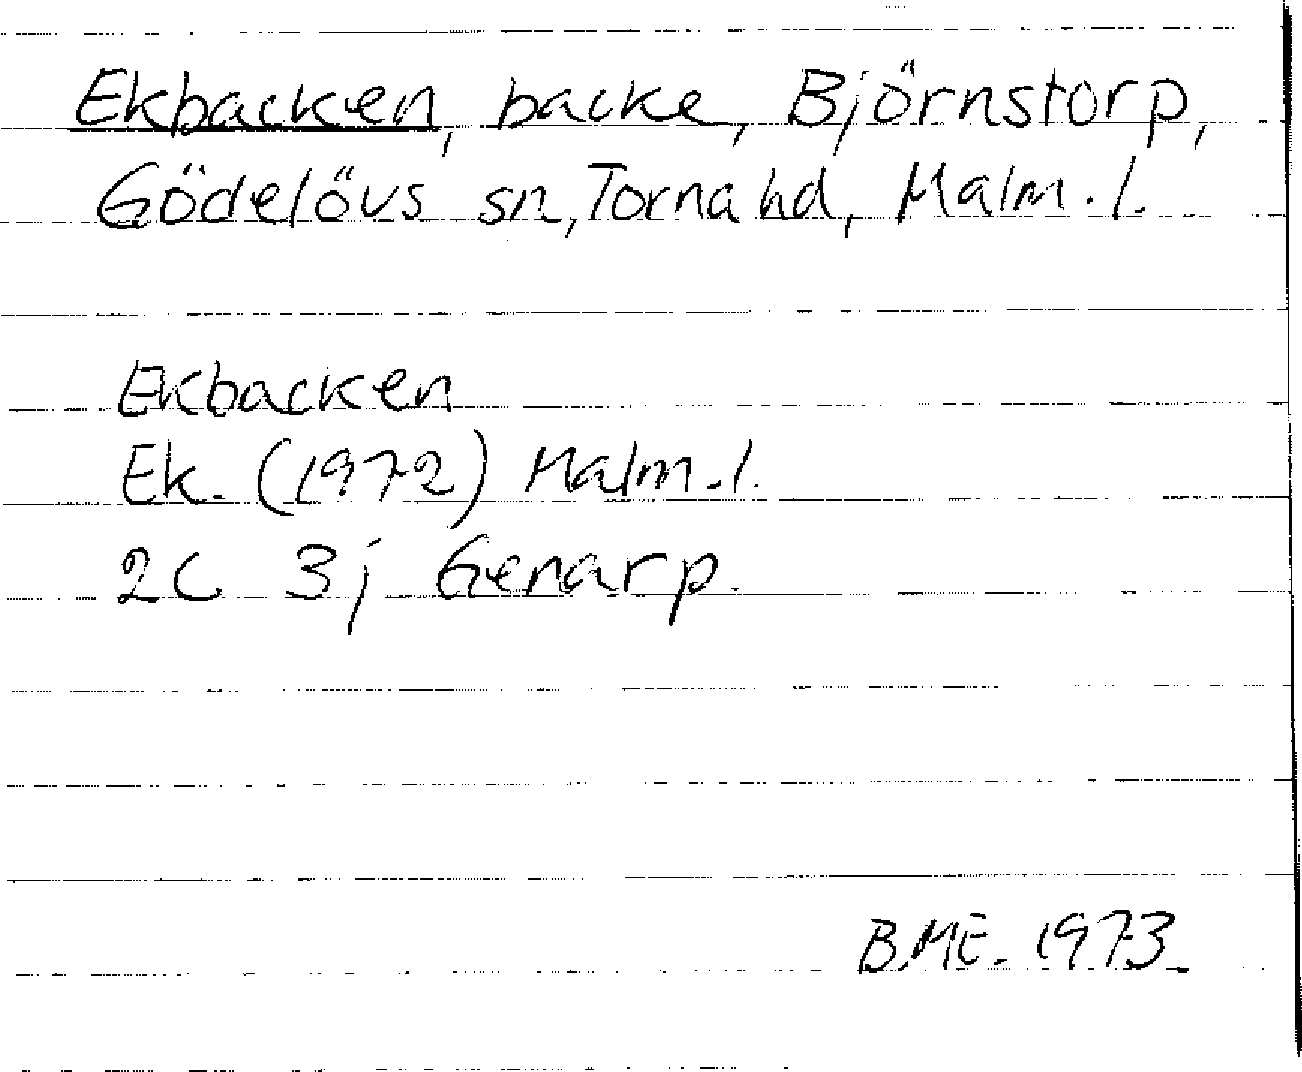 Ekbacken, backe, Björnstorp,
Gödelövs sn, Torna hd, Malm. l.
Ekbacken
Ek. (1972) Malm. l.
2C 3j Genarp.
B.ME. 1973